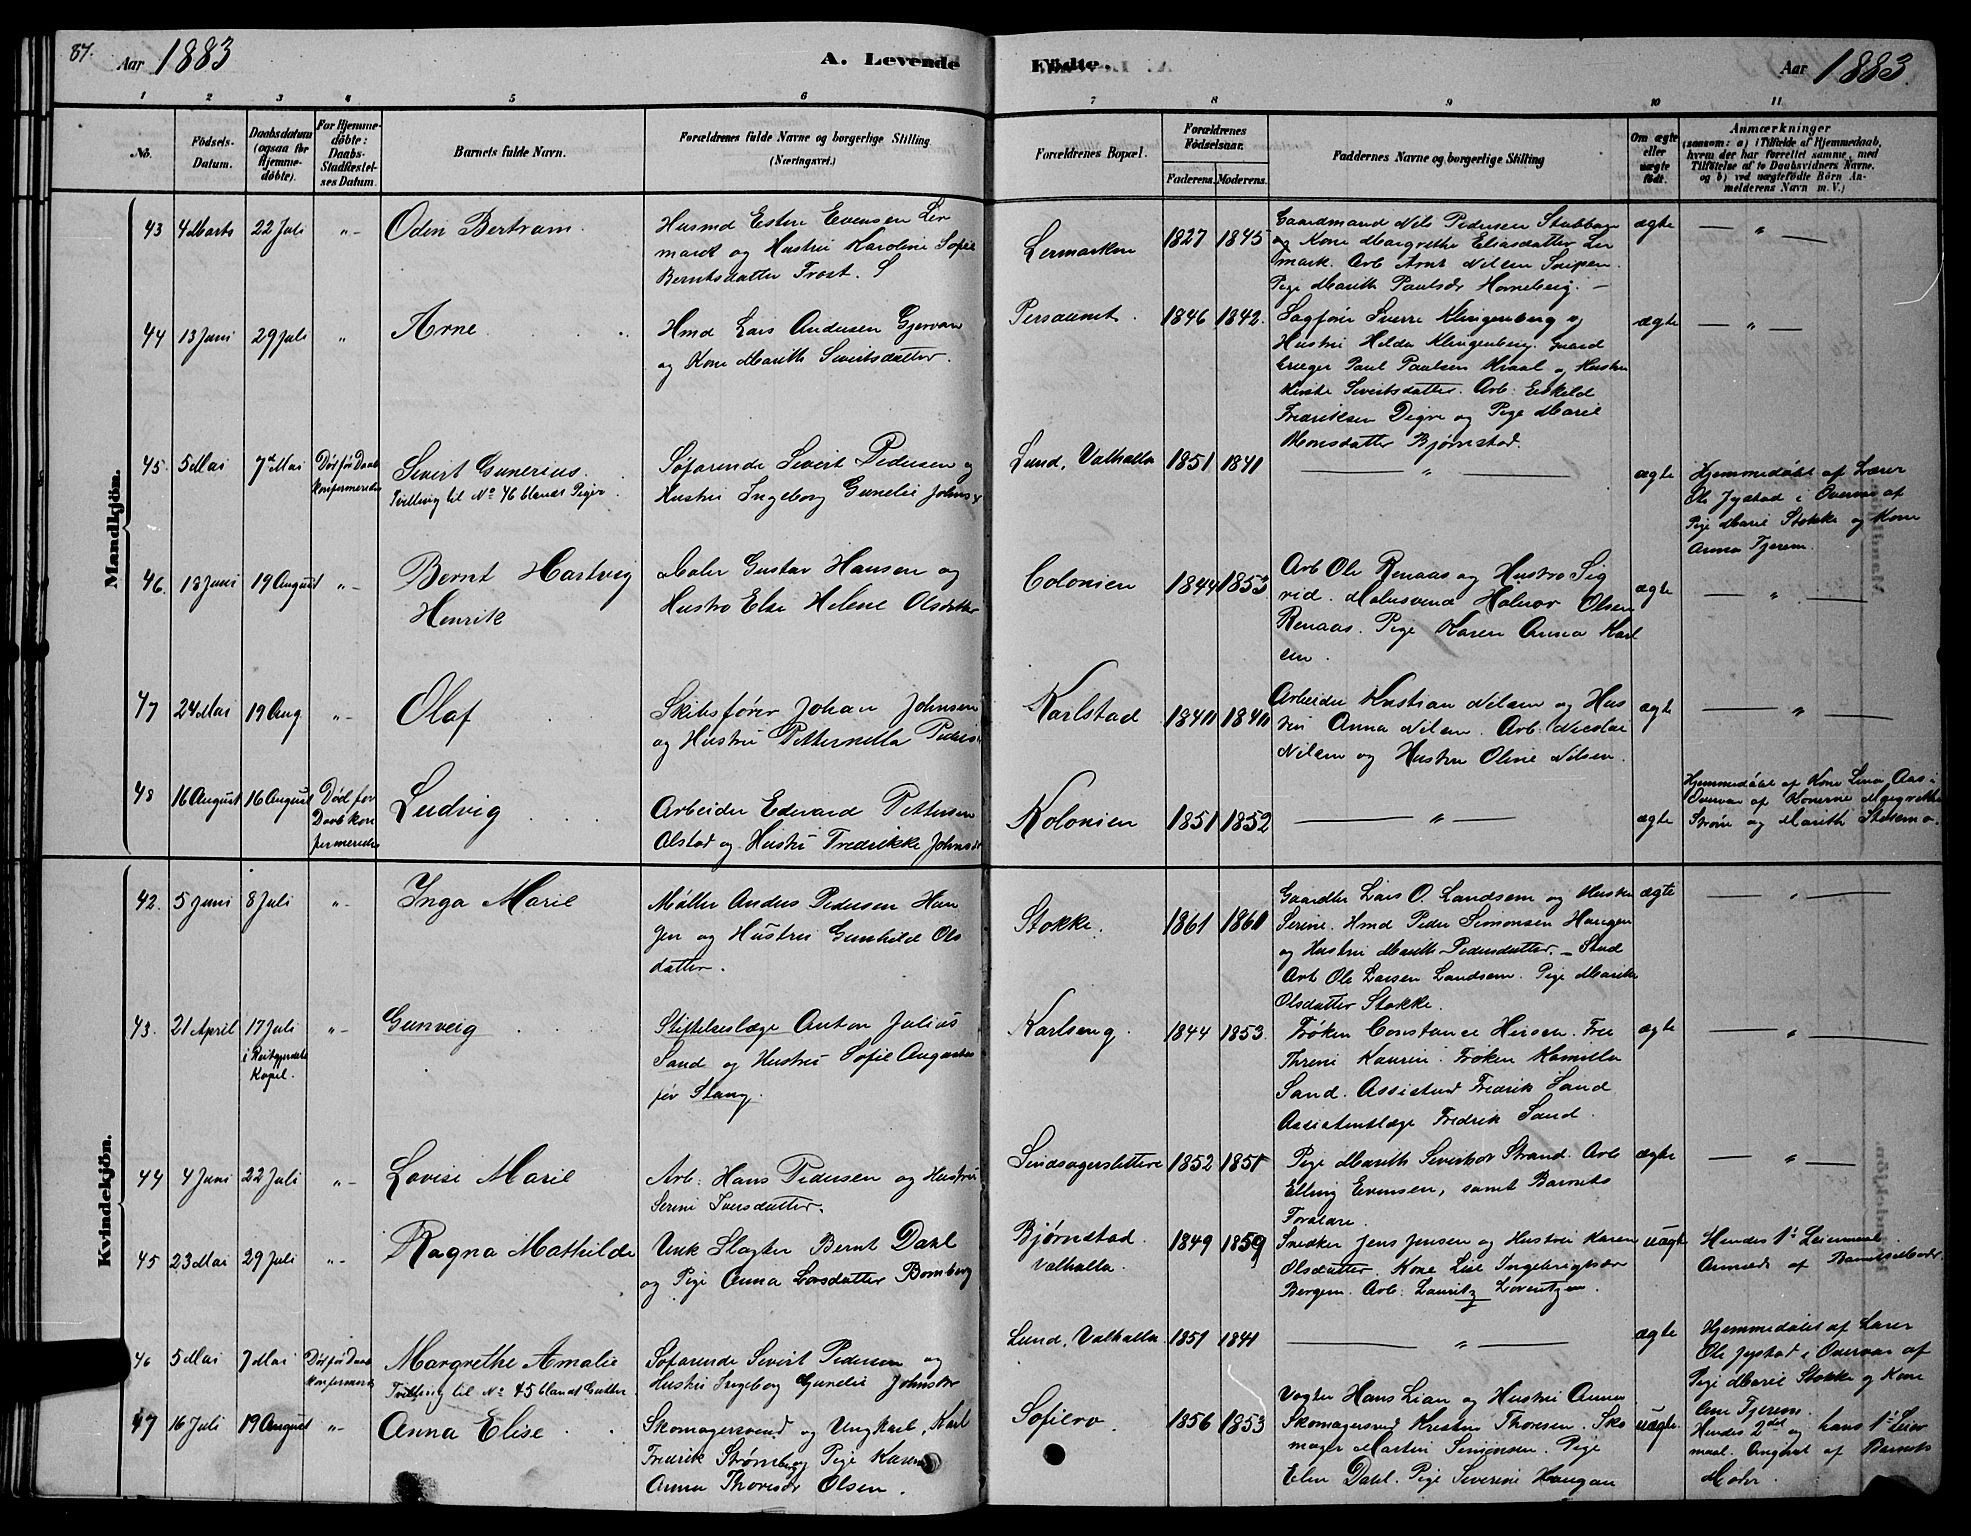 87.
Aar 1883
A. Levende
Födte.
Aar 1883.
1 2 3 4 5 6 7 8 9 10 11
No.
Födsels-Datum.
Daabsdatum (ogsaa for Hjemmedöbte).
For Hjemmedöbte: Daabs-Stadfæstelses Datum.
Barnets fulde Navn.
Forældrenes fulde Navne og borgerlige Stilling (Næringsvei.)
Forældrenes Bopæl.
Forældrenes Födselsaar.
Faderens. Moderens.
Faddernes Navne og borgerlige Stilling
Om ægte eller uægte födt.
Anmærkninger
(saasom: a) i Tilfælde af Hjemmedaab, hvem der har forrettet samme, med Tilföielse af to Daabsvidners Navne, og b) ved uægtefödte Börn Anmelderens Navn m. V.)
Mandkjön.
43 4 Marts 22 Juli "- Oden Bertram
Husmd Esten Evensen Ler
marck og Hustru Karoline Sofie
Berntsdatter Trøst.
Lermarken 1827 1845
Gaardmand Nils Pedersen Stubban
og Kone Margrethe Eliasdatter Ler
mark. Arb Arnt Nilsen Snipen.
Pige Marith Paulsdr Horneberg. -
ægte — " —
44 13 Juni 29 Juli " Arne
Hmd Lars Andersen Gjervan
og Kone Marith Sivertsdatter.
Persaunet. 1846 1842.
Sagfører Sverre Klingenberg og
Hustru Hilda Klingenberg. Gaard
bruger Paul Paulsen Kraal og Hustru
Sivertsdatter. Arb: Eskild
Fredriksen Digre og Pige Marie
Monsdatter Bjørnstad.
ægte — " —
45. 5 Mai 7de Mai Død før Daab Konfermeredes
Sivert Gunerius.
Tvilling til No 46 blandt Piger.
Søfarende Sivert Pedersen og
Hustru Ingeborg Gunelie Johnsdr
Lund, Valhalla 1851 1841
— " —
ægte
Hjemmedøbt af Lærer
Ole Jystad i Overvær af
Pige Marie Stokke og Kone
Anna Tjerem.
46. 13 Juni 19 August "-
Bernt Hartvig
Henrik
Maler Gustav Hansen og
Hustro Else Helene Olsdatter
Colonien 1844 1853
Arb Ole Renaas og Hustro Sig
rid. Malersvend Halvor Olsen
Renaas. Pige Karen Anna Karl
sen.
ægte — " —
47 24 Mai 19 Aug "- Olaf
Skibsfører Johan Johnsen
og Hustru Petternella Pedersdr
Karlstad 1840 1840
Arbeider Kristian Nilsen og Hus
tru Anna Nilsen. Arb: Nicolai
Nilsen og Hustru Oline Nilsen.
ægte — " —
48 16 August 16 August Død for Daab kon fermeredes
Ludvig
Arbeider Edvard Pettersen
Alstad og Hustru Fredrikke Johnsdr
Kolonien 1851 1852
— " —
ægte
Hjemmedøbt af Kone Lina Aas i
Overvær af Konerne Margrethe
Strøm og Marith Stokkemo.
Kvindekjön.
42. 5 Juni 8 Juli "- Inga Marie
Møller Anders Pedersen Hau
gen og Hustru Gunhild Ols
datter.
Stokke. 1861 1860
Gaardbr Lars O. Landsem og Hustru
Serine. Hmd Peder Simonsen Haugen
og Hustru Marith Pedersdatter. - Stud
Arb Ole Larsen Landsem. Pige Marith
Olsdatter Stokke.
ægte — " —
43. 21 April 17 Juli "- Gunveig
i Reitgjerdets Kapel.
Stiftelseslæge Anton Julius
Sand og Hustru Sofie Augusta
før Stang.
Karlseng. 1844 1853.
Frøken Constance Heisen. Frue
Thrine Kaurin. Frøken Kamilla
Sand. Assistend Fredrik Sand
Assistentlæge Fredrik Sand.
ægte — " —
44 4 Juni 22 Juli "- Lovise Marie
Arb: Hans Pedersen og Hustru
Serine Iversdatter.
Sindsagerslettere 1852 1851
Pige Marith Sivertsdr Strand. Arb
Elling Evensen, samt Barnets
Forældre.
ægte — " —
45 23 Mai 29 Juli "- Ragna Mathilde
Unk Slagter Bernt Dahl
og Pige Anna Larsdatter Bomberg
Bjørndstad Valhalla. 1849 1859
Snedker Jens Jensen og Hustru Karen
Olsdatter. Kone Lise Ingebrigtsdr
Bergem. Arb: Lauritz Lorentzen.
uægte
Hendes 1ste Leiermaal.
Anmeldt af Barnets Moder
46 5 Mai 7 Mai Død før Daab Konfermert
Margrethe Amalie
Tvilling til No 45 blandt Gutter
Søfarende Sivert Pedersen og
Hustru Ingeborg Gunelie Johnsdr
Lund, Valhalla. 1851 1841
— " —
ægte
Hjemmedøbt af Lærer
Ole Jystad i Overvær af
Pige Marie Stokke og Kone
Ane Tjerem.
47 16 Juli 19 August "- Anna Elise
Skomagersvend og Ungkarl, Karl
Fredrik Strømberg og Pige Karen
Anna Thoresdr Olsen.
Sofilero 1856 1853
Vogter Hans Lian og Hustru Anna
Skomagersvd Kristen Thoresen. Sko
mager Martin Simonsen. Pige
Elen Dahl. Pige Severine Haugan
uægte
Hendes 2det og hans 1ste Leier
maal. Angivet af Barnets
Moder.